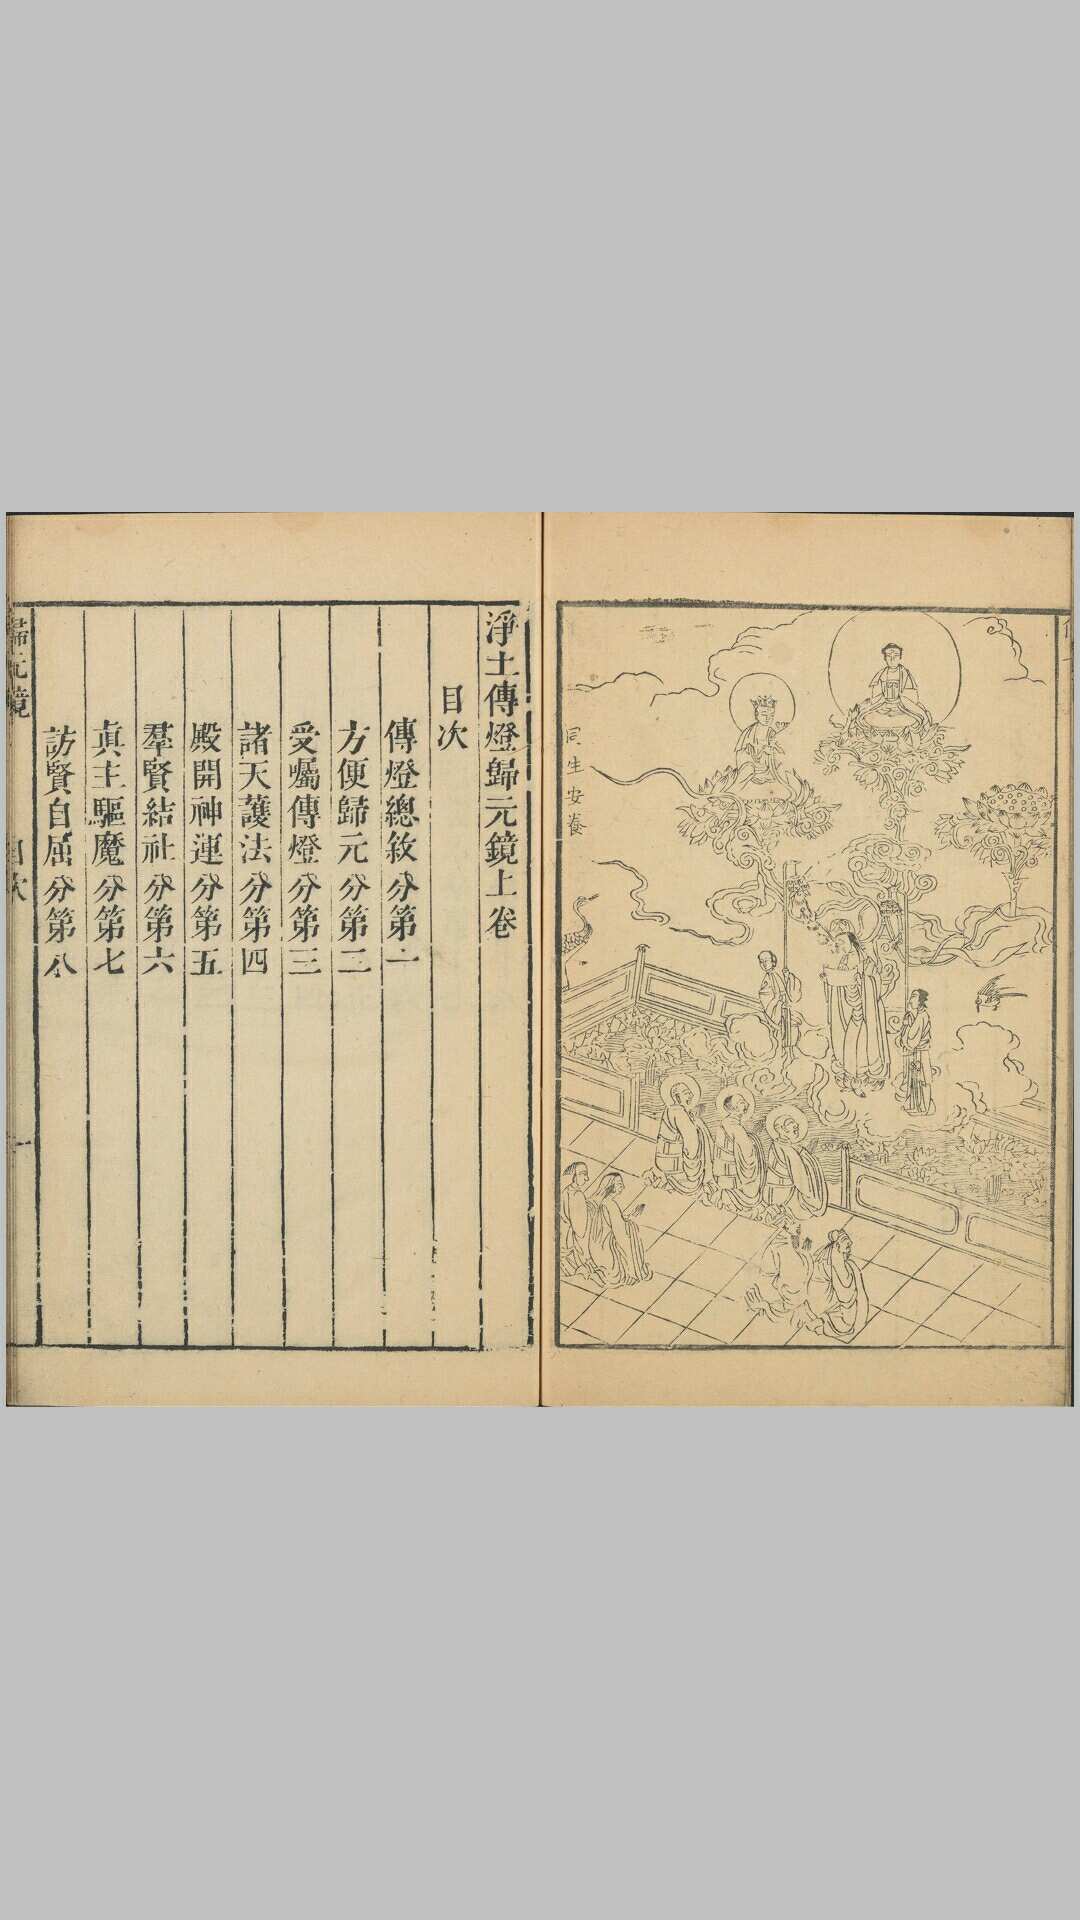 同生安養
淨土傳燈歸元鏡上卷
目次
傳燈總敘分第一
方便歸元分第二
受囑傳燈分第三
諸天護法分第四
殿開神運分第五
羣賢結社分第六
真主驅魔分第七
訪賢自屈分第八
歸元鏡
目次
一